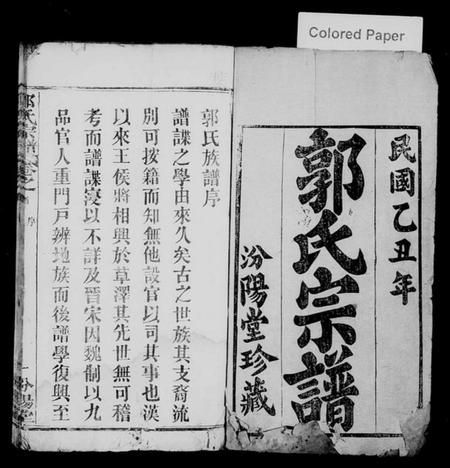 Colored Paper
民國乙丑年
郭氏宗譜
汾陽堂珍藏
郭氏族譜序
譜諜之學由來久矣古之世族其支裔流
別可按籍而知無他設官以司其事也漢
以來王侯將相興於草澤其先世無可稽
考而譜諜寖以不詳及晉宋因魏制以九
品官人重門戸辨地族而後譜學復興至
郭氏宗譜卷之一
序